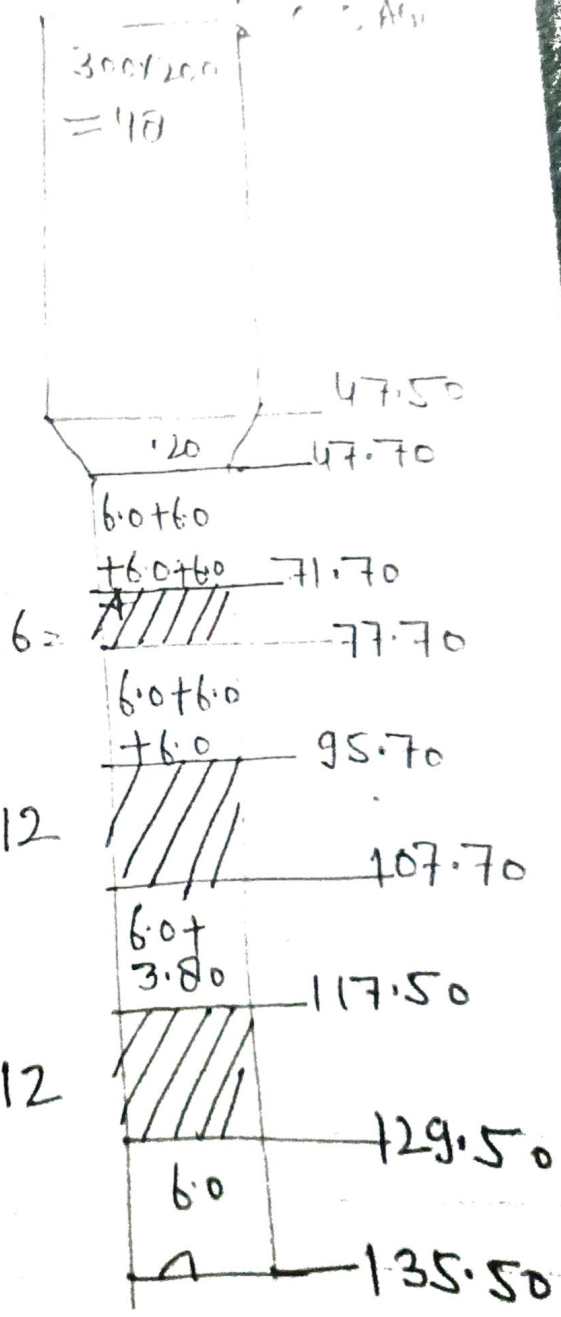 300x200
= 48
47.50
.20
47.70
6.0+6.0
+6.0+6.0
71.70
6=
77.70
6.0+6.0
+6.0
95.70
12
107.70
6.0+
3.80
117.50
12
129.50
6.0
135.50